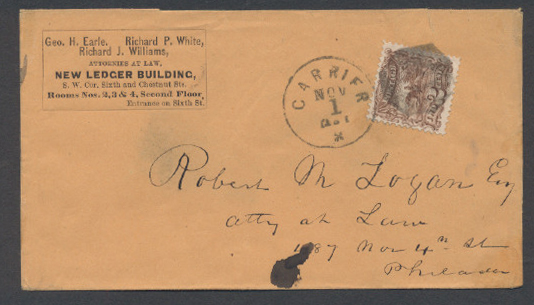 Geo. H. Earle. Richard P. White,
Richard J. Williams,
ATTORNIES AT LAW,
NEW LEDGER BUILDING,
S. W. Cor. Sixth and Chestnut Sts.
Rooms Nos. 2, 3 & 4, Second Floor,
Entrance on Sixth St.
CARRIER
NOV
1
Robert M Logan Esq
Atty at Law
No 4th St
Philada